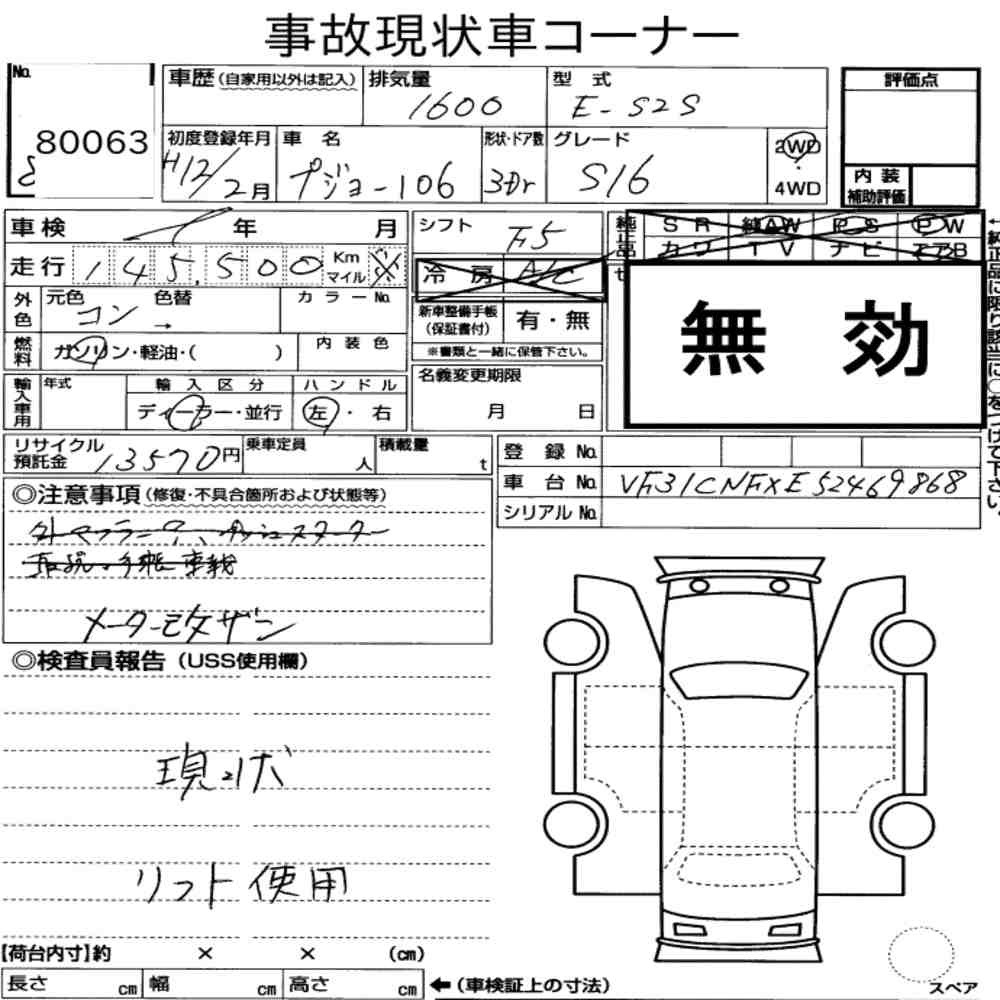 事故現状車コーナー
No.
80063
車歴(自家用以外は記入)
排気量
1600
型 式
E-S2S
評価点
初度登録年月
H12/2月
車 名
プジョー106
形状・ドア数
3Dr
グレード
S16
2WD
・
4WD
内 装
補助評価
車検
年 月
シフト
F5
純正品
S R 純AW P S P W
カワ T V ナビ エアB
走行
145,500
Km
マイル
冷 房
A/C
外色
元色 色替
コン →
カラーNo.
新車整備手帳
(保証書付)
有・無
※書類と一緒に保管下さい。
無 効
燃料
ガソリン・軽油・( )
内 装 色
輸入車用
年式
輸 入 区 分
ディーラー・並行
ハ ン ド ル
左 ・ 右
名義変更期限
月 日
リサイクル
預託金
13570円
乗車定員
人
積載量
t
登 録 No.
車 台 No.
VF31CNFXE52469868
シリアルNo.
◎注意事項(修復・不具合箇所および状態等)
メーター改ザン
◎検査員報告(USS使用欄)
リフト使用
【荷台内寸】約 × × (cm)
長さ cm 幅 cm 高さ cm ←(車検証上の寸法)
スペア